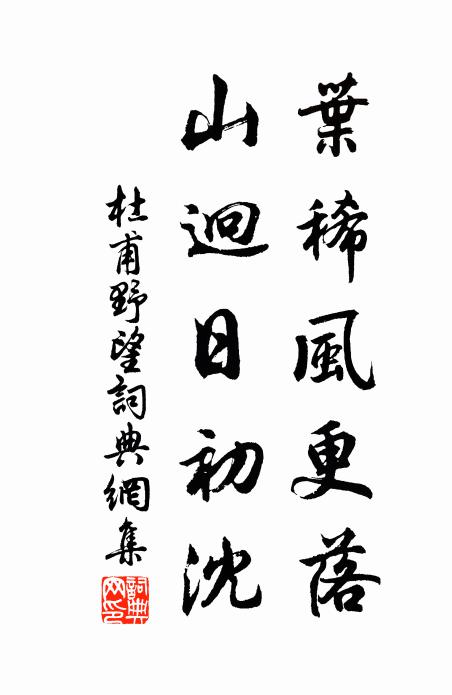 葉稀風更落
山迥日初沈
杜甫野望詞典網集
詞典網印